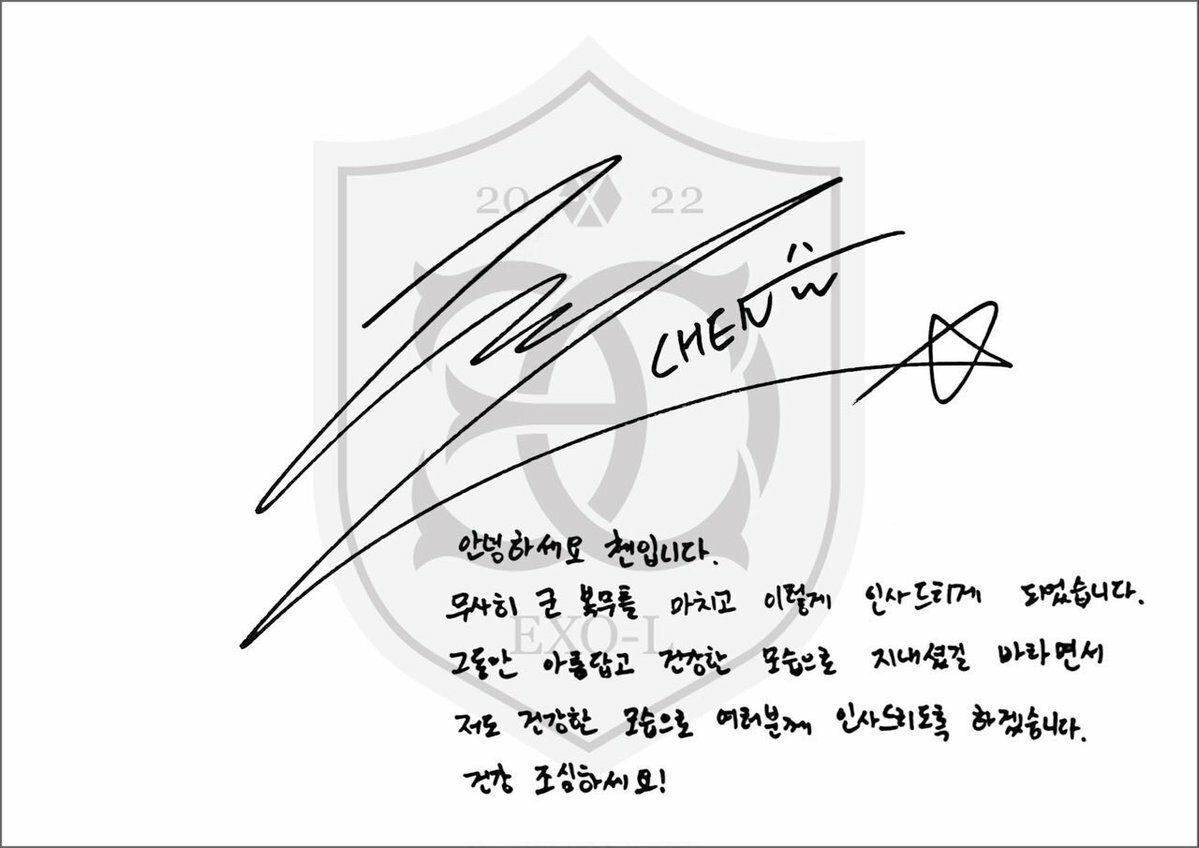 20 22
CHEN
안녕하세요 첸입니다.
무사히 군 복무를 마치고 이렇게 인사드리게 되었습니다.
EXO-L
그동안 아름답고 건강한 모습으로 지내셨길 바라면서
저도 건강한 모습으로 여러분께 인사드리도록 하겠습니다.
건강 조심하세요!